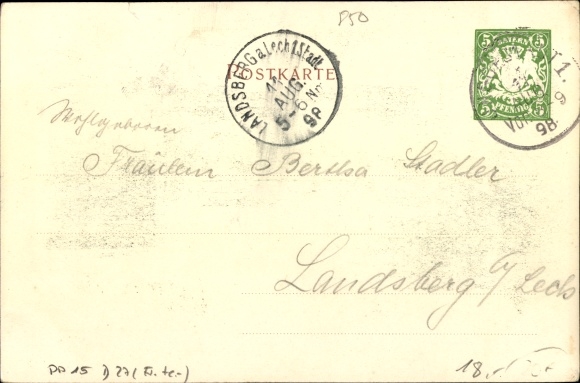 850
POSTKARTE
LANDSBERG a.Lech 1.Stadt.
11
AUG.
5-6 N
98
5 BAYERN 5
5 PFENNIG 5
98
Wohlgeboren
Fräulein Bertha Stadler
Landsberg a/Lech
PP 15 D 27
18.